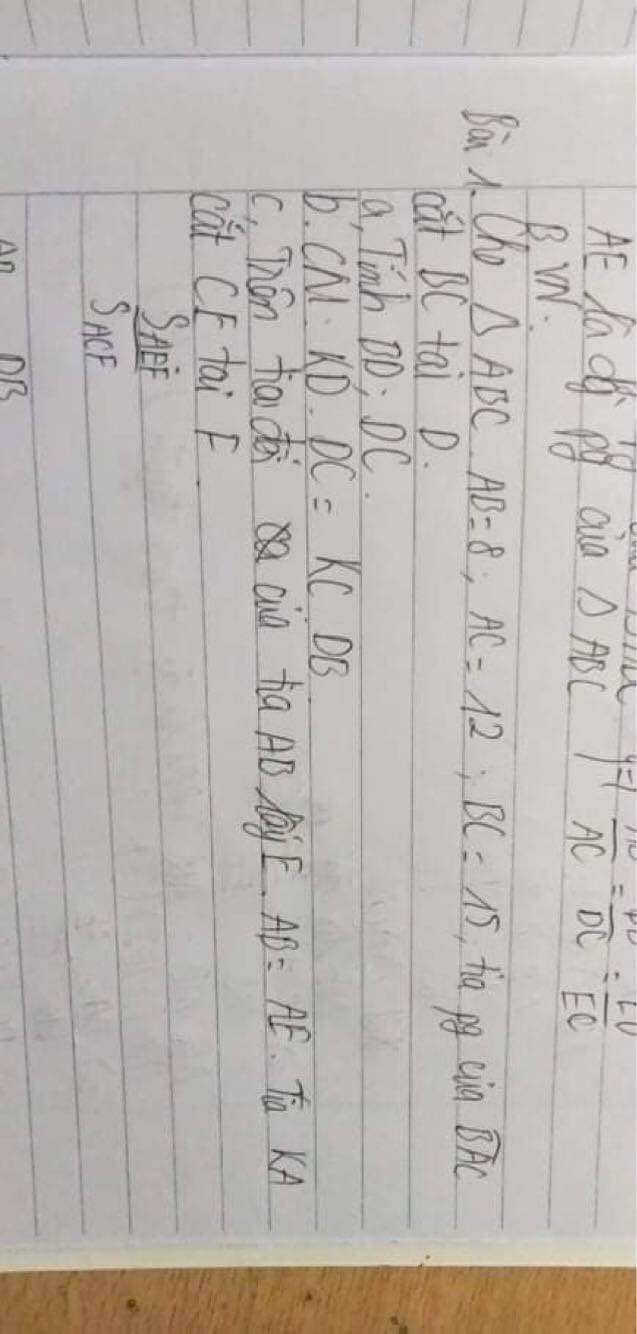 AE là đg pg của Δ ABC AC DC EC
B VN.
Bài 1. Cho Δ ABC. AB=8; AC=12; BC=15, tia pg của BAC
cắt BC tại D.
a, Tính BD; DC.
b. CM: KD. DC = KC DB
c, Trên tia đối của tia AB lấy E. AB= AE. Tia KA
cắt CE tại F
S AEF
S ACF
DB